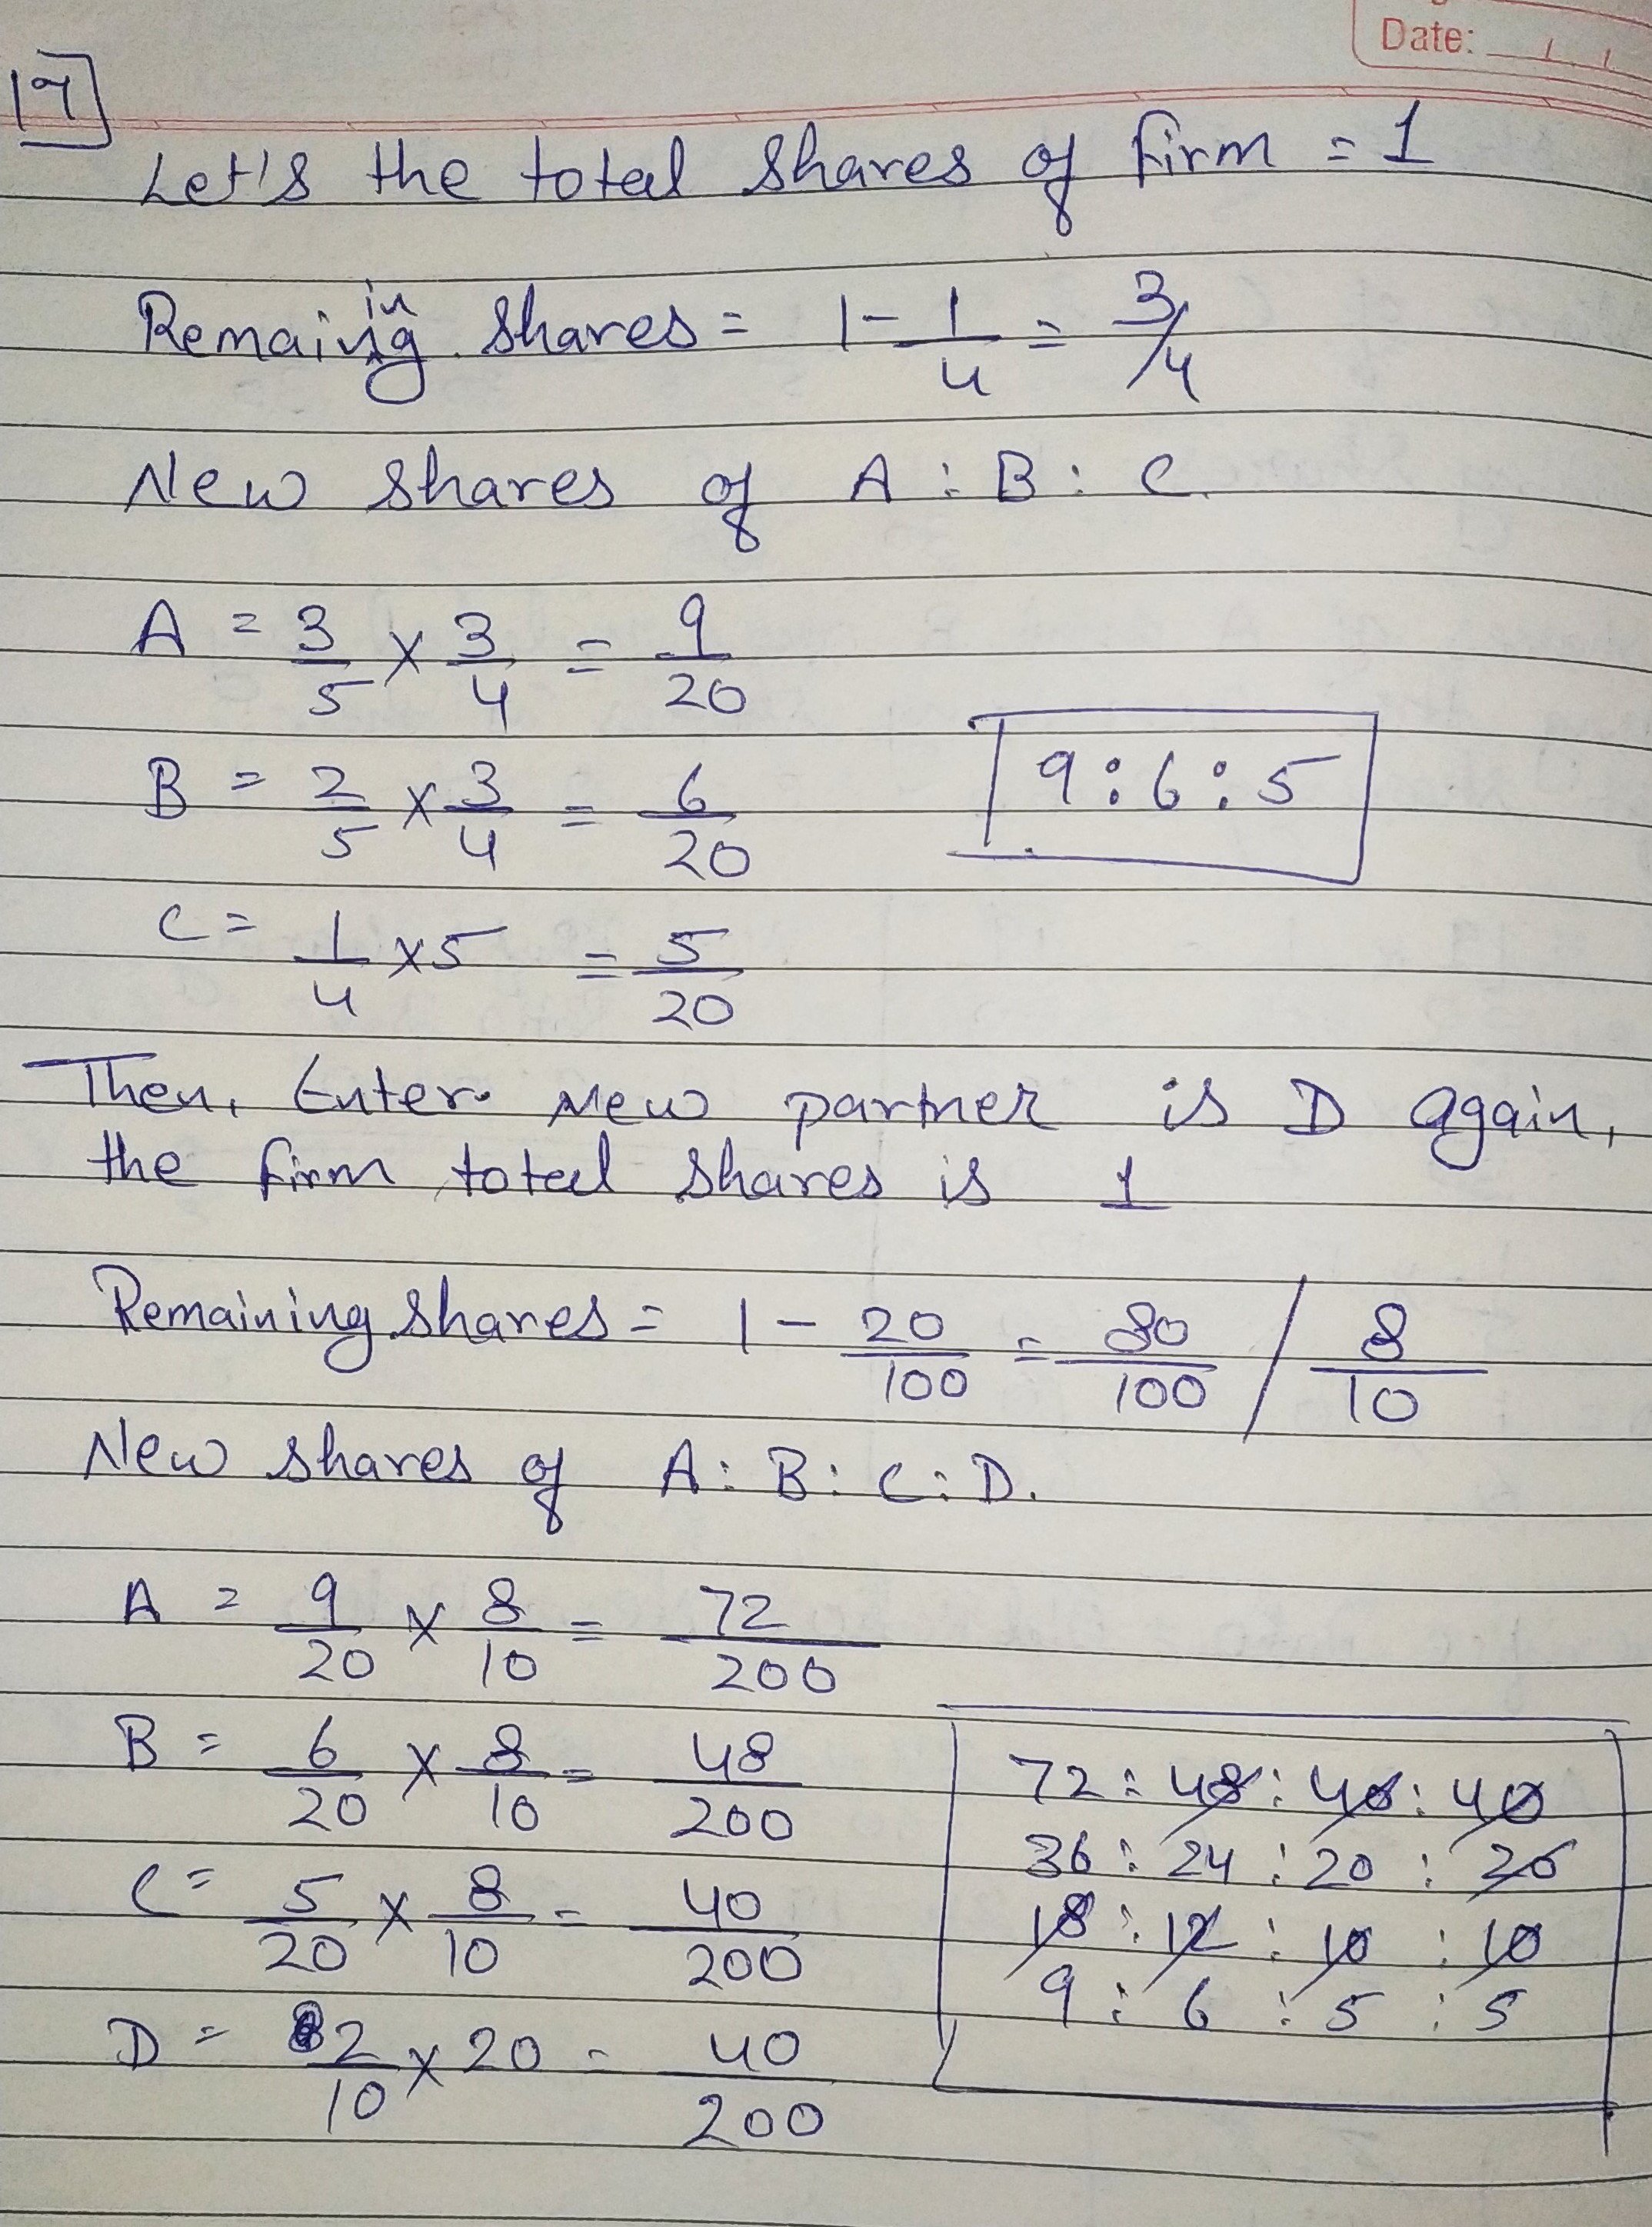 Date:
17
Let's the total shares of firm = 1
Remaining shares = 1 - 1/4 = 3/4
New shares of A : B : C.
A = 3/5 × 3/4 = 9/20
B = 2/5 × 3/4 = 6/20
9 : 6 : 5
C = 1/4 × 5 = 5/20
Then, Enter new partner is D again,
the firm total shares is 1
Remaining shares = 1 - 20/100 = 80/100 / 8/10
New shares of A : B : C : D.
A = 9/20 × 8/10 = 72/200
B = 6/20 × 8/10 = 48/200
C = 5/20 × 8/10 = 40/200
D = 2/10 × 20 = 40/200
72 : 48 : 40 : 40
36 : 24 : 20 : 20
18 : 12 : 10 : 10
9 : 6 : 5 : 5